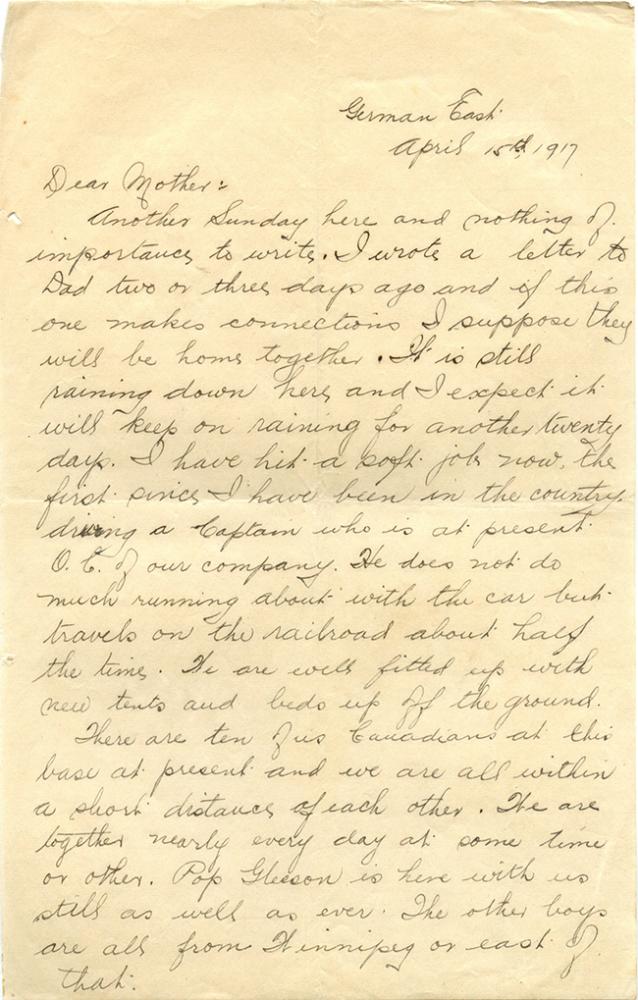 German East.
April 15th, 1917
Dear Mother:
Another Sunday here and nothing of
importance to write. I wrote a letter to
Dad two or three days ago and if this
one makes connections I suppose they
will be home together. It is still
raining down here and I expect it
will keep on raining for another twenty
days. I have hit a soft job now, the
first since I have been in the country.
driving a Captain who is at present
O.C. of our company. He does not do
much running about with the car but
travels on the railroad about half
the time. We are well fitted up with
new tents and beds up off the ground.
There are ten of us Canadians at this
base at present and we are all within
a short distance of each other. We are
together nearly every day at some time
or other. Pop Gleeson is here with us
still as well as ever. The other boys
are all from Winnipeg or east of
that.